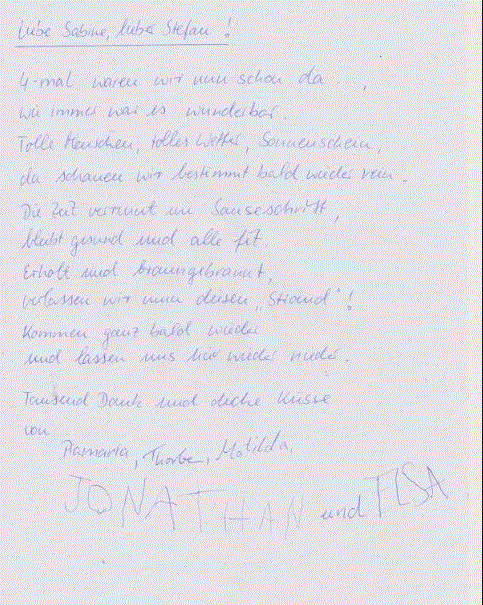 Liebe Sabine, lieber Stefan!
4-mal waren wir nun schon da ...,
wie immer war es wunderbar.
Tolle Menschen, tolles Wetter, Sonnenschein,
da schauen wir bestimmt bald wieder rein.
Die Zeit verrinnt im Sauseschritt,
bleibt gesund und alle fit.
Erholt und braungebrannt,
verlassen wir nun diesen „Strand"!
Kommen ganz bald wieder
und lassen uns hier wieder nieder.
Tausend Dank und dicke Küsse
von
Thorben, Matilda,
JONATHAN und ILSA